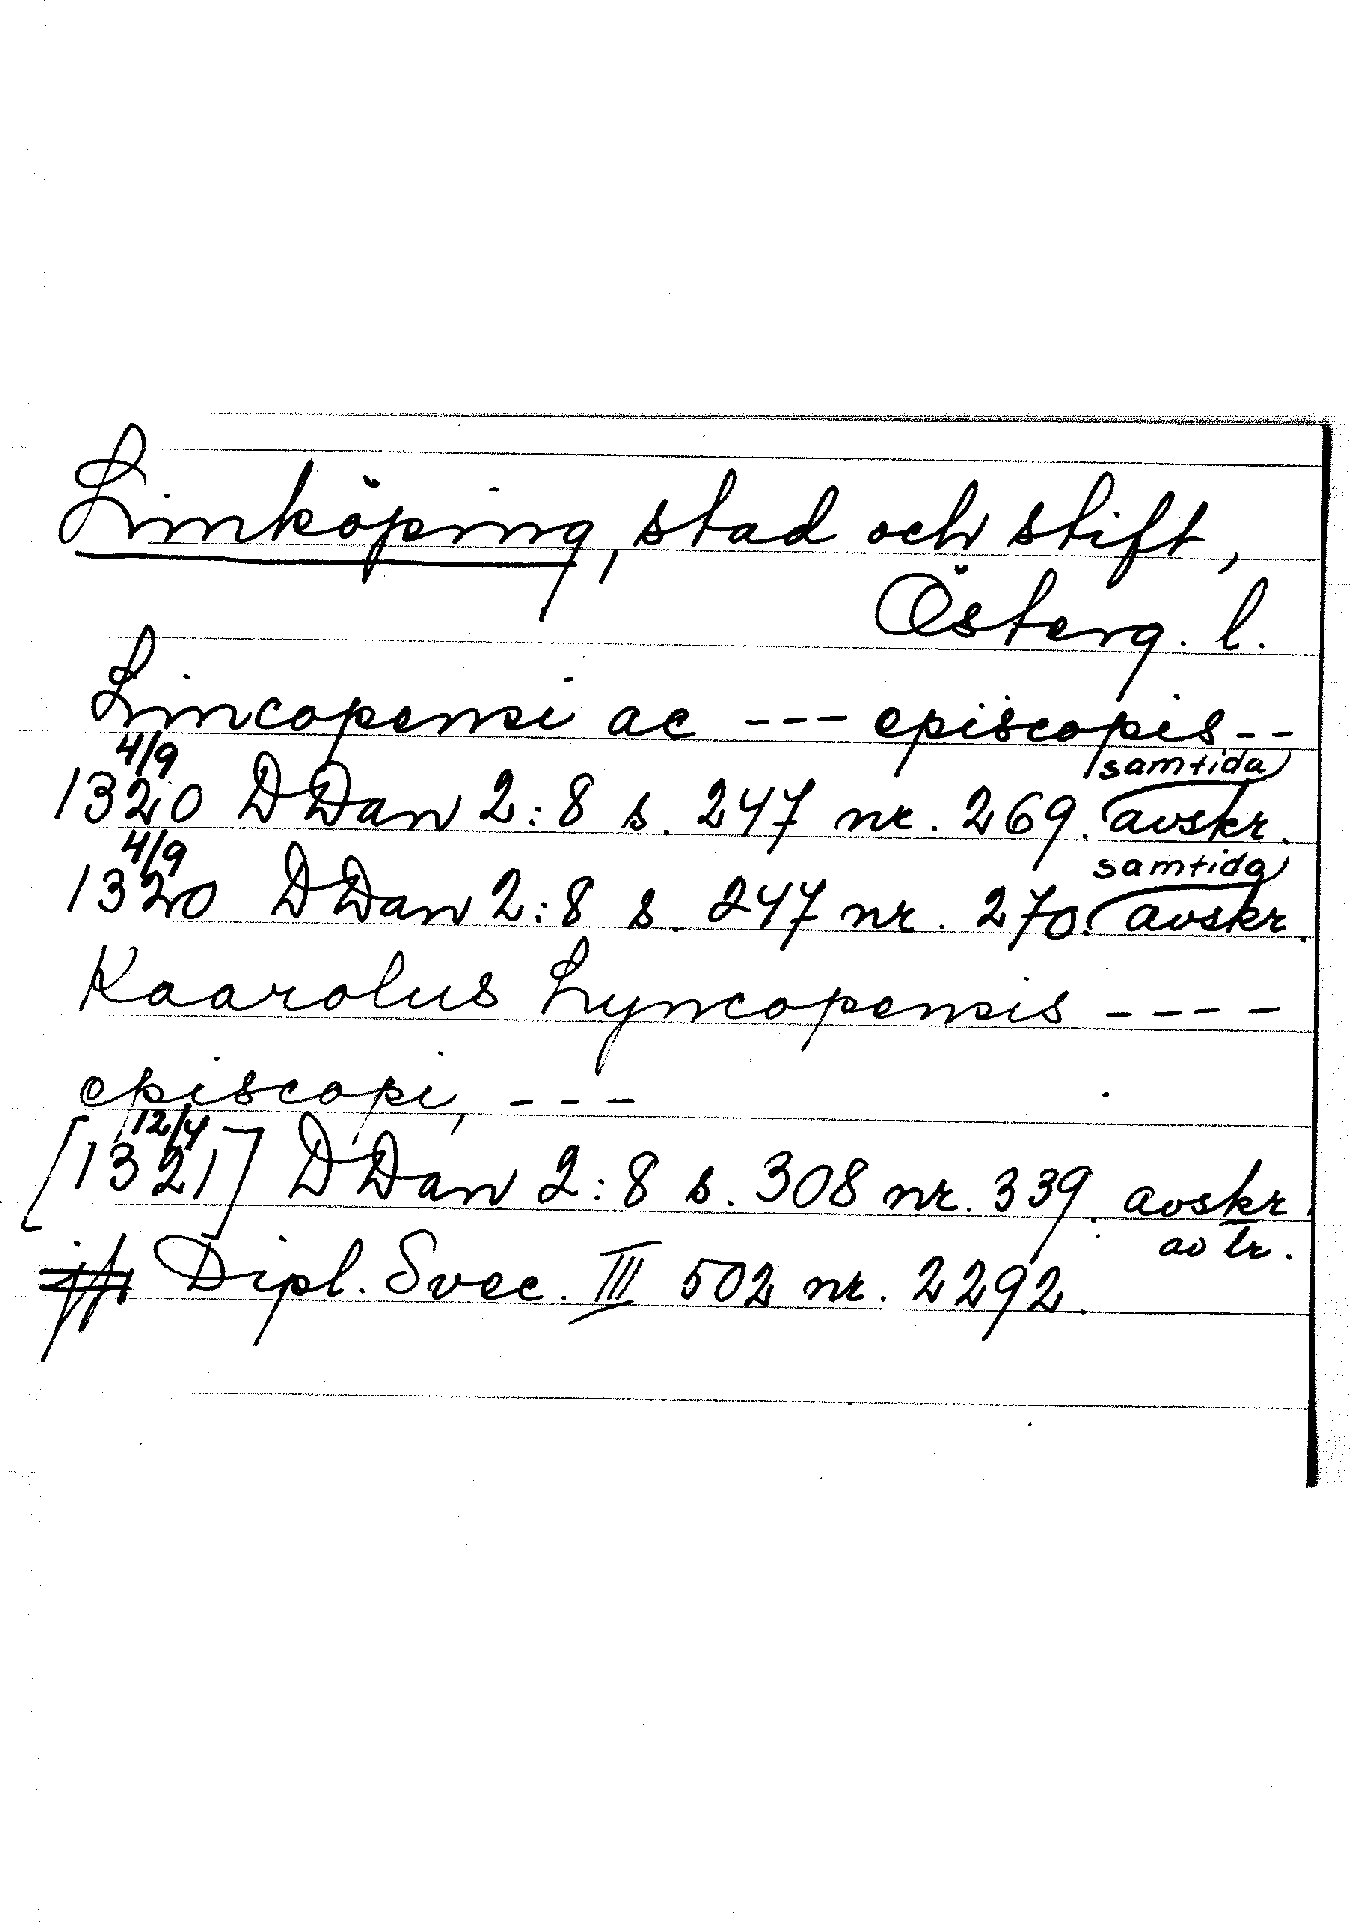 Linköping, stad och stift,
Österg. l.
Lincopensi ac --- episcopis--
1320 4/9 DDan 2:8 s. 247 nr. 269. samtida avskr.
1320 4/9 DDan 2:8 s. 247 nr. 270. samtida avskr.
Kaarolus Lyncopensis ----
episcopi, ---
[1321 12/4] DDan 2:8 s. 308 nr. 339. avskr.
av tr.
jfr Dipl. Svec. III 502 nr. 2292.